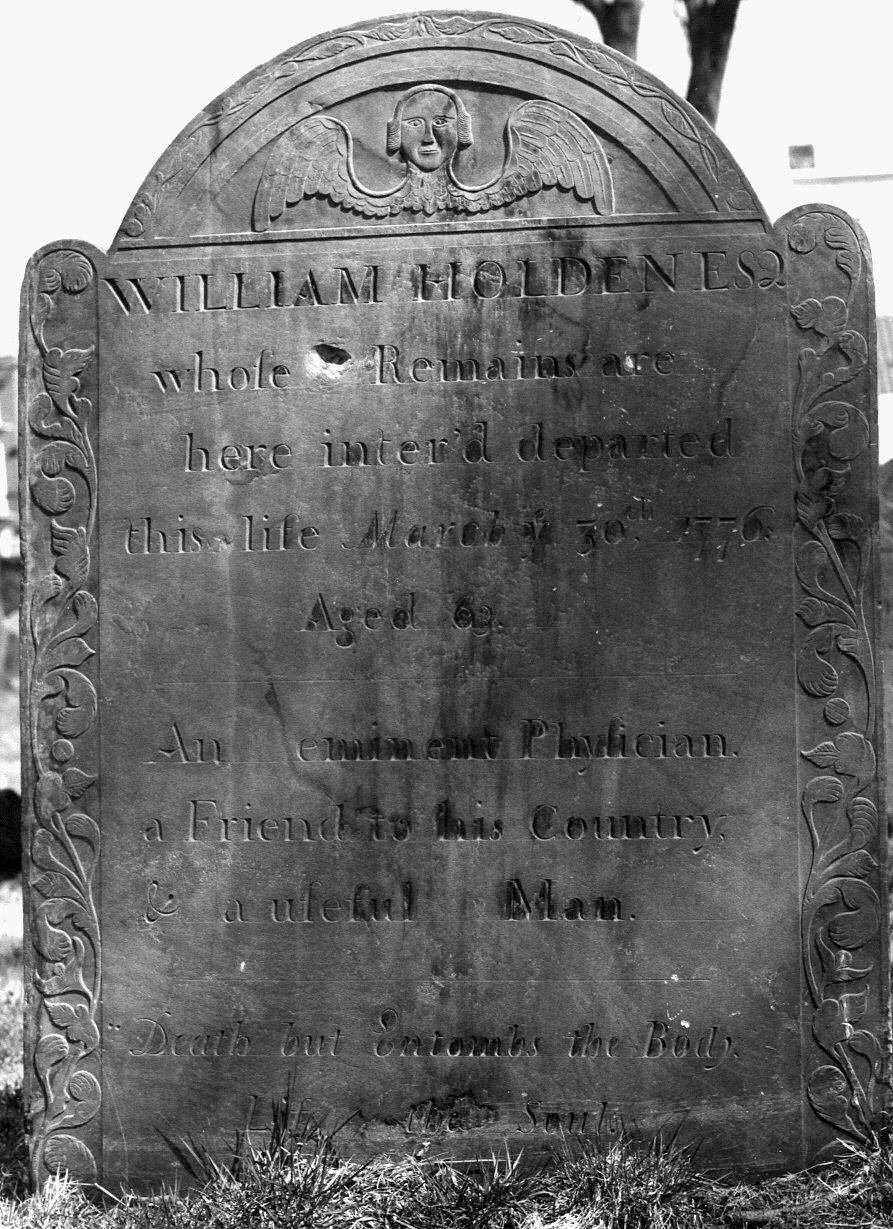 WILLIAM HOLDEN ESQ
whoſe Remains are
here inter'd departed
this liſe March yͤ 30th. 1776.
Aged 63.
An eminent Phyſician.
a Friend to his Country,
& a uſeful Man.
"Death but Entombs the Body.
Life the Soul